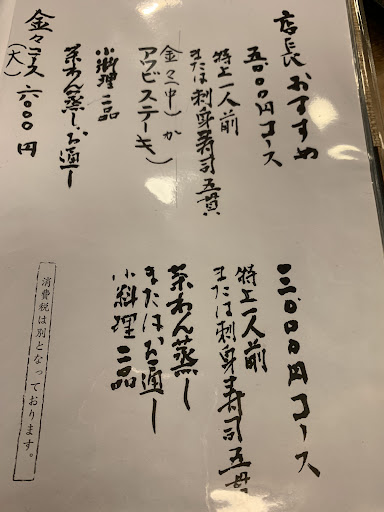 店長おすすめ
五〇〇〇円コース
特上一人前
または刺身寿司五貫
金々(中)か
アワビステーキ)
小料理二品
茶わん蒸し、お通し
金々コース 六〇〇〇円
(大)
三〇〇〇円コース
特上一人前
または刺身寿司五貫
茶わん蒸し
またはお通し
小料理二品
消費税は別となっております。